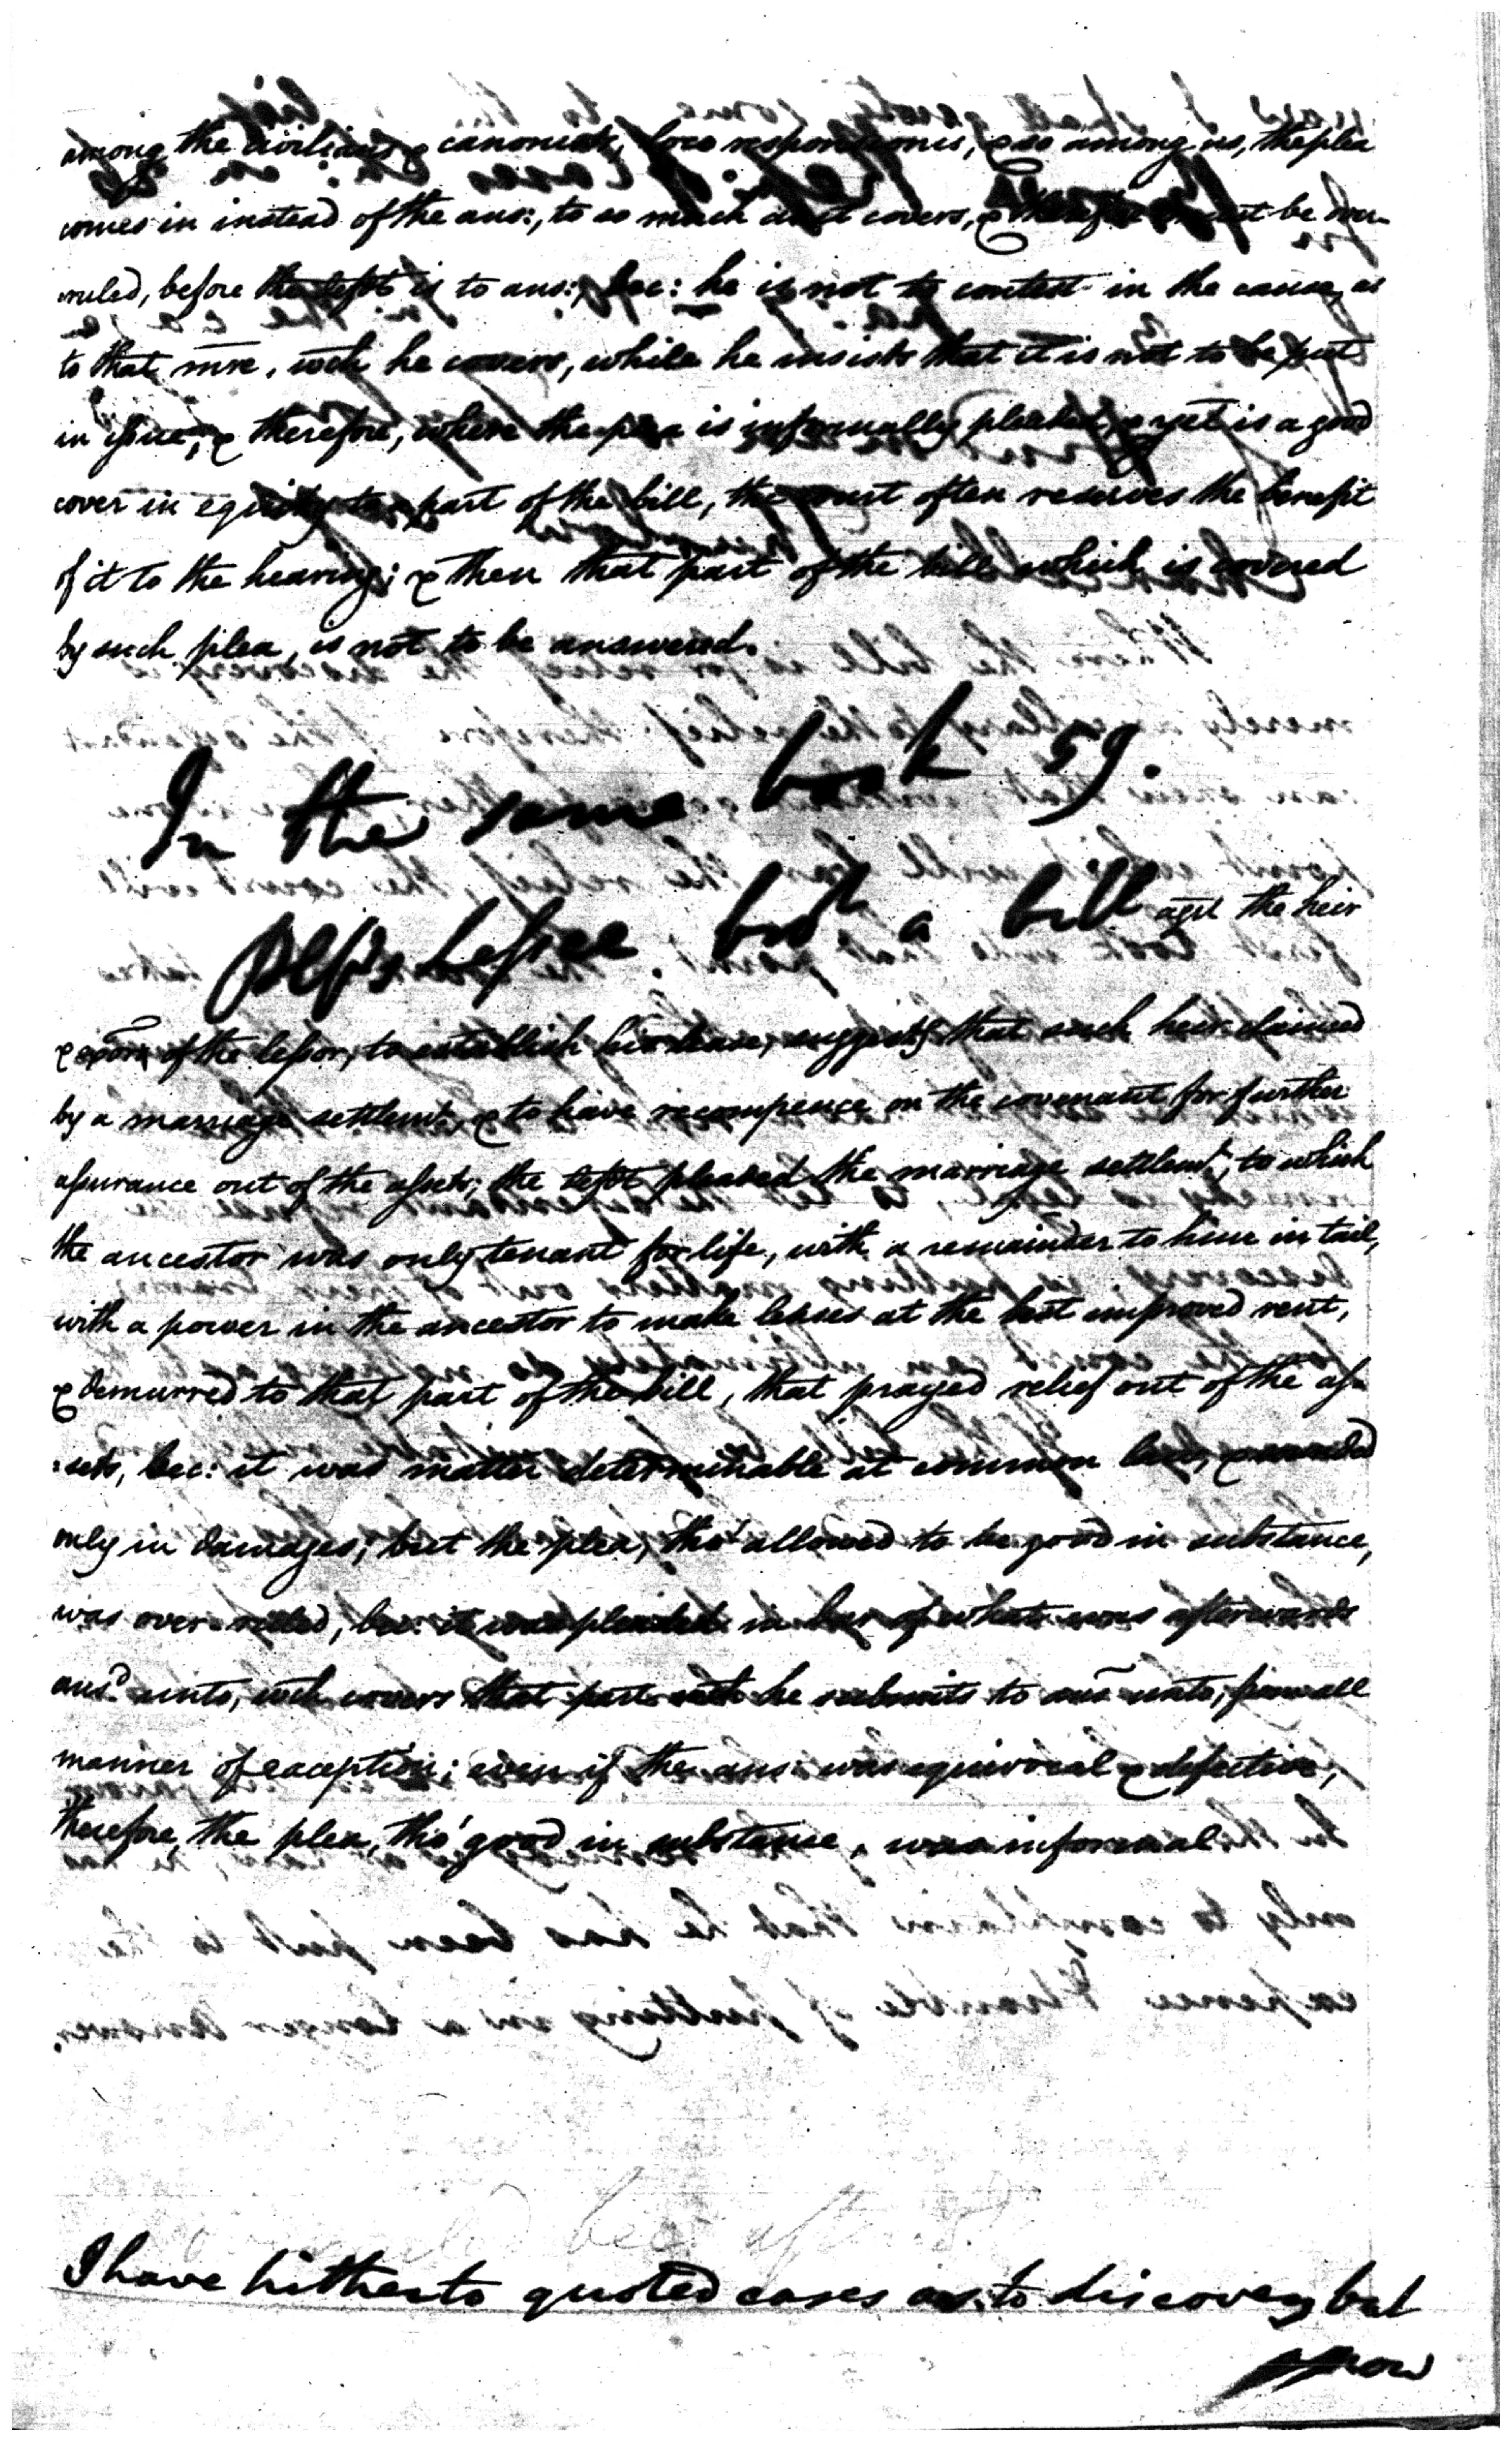 among the civilians & canonists, loco responsionis, & so among us, the plea
comes in instead of the ans:, to so much as it covers, & therefore must be over-
ruled, before the deft is to ans:, bec: he is not to contest in the cause, as
to that mre, wch he covers, while he insists that it is not to be put
in issue; & therefore, where the plea is informally pleaded, & yet is a good
cover in equity to part of the bill, the court often reserves the benefit
of it to the hearing; & then that part of the bill which is covered
by such plea, is not to be answered.
In the same book 59.
Plf's lessee brot a bill agst the heir
& exor of the lessor, to establish his lease, suggestg that such heir claimed
by a marriage settlemt, & to have recompence on the covenant for further
assurance out of the assets; the deft pleaded the marriage settlemt, to which
the ancestor was only tenant for life, with a remainder to him in tail,
with a power in the ancestor to make leases at the best improved rent,
& demurred to that part of the bill, that prayed relief out of the as-
:sets, bec: it was matter determinable at common law, & sounded
only in damages; but the plea, tho' allowed to be good in substance,
was over-ruled, bec: it was pleaded in bar of what was afterwards
ansd unto, wch covers that part wch he submits to ans unto, from all
manner of exception; even if the ans: was equivocal & defective,
therefore, the plea, tho' good in substance, was informal.
I have hitherto quoted cases as to discovery but
now